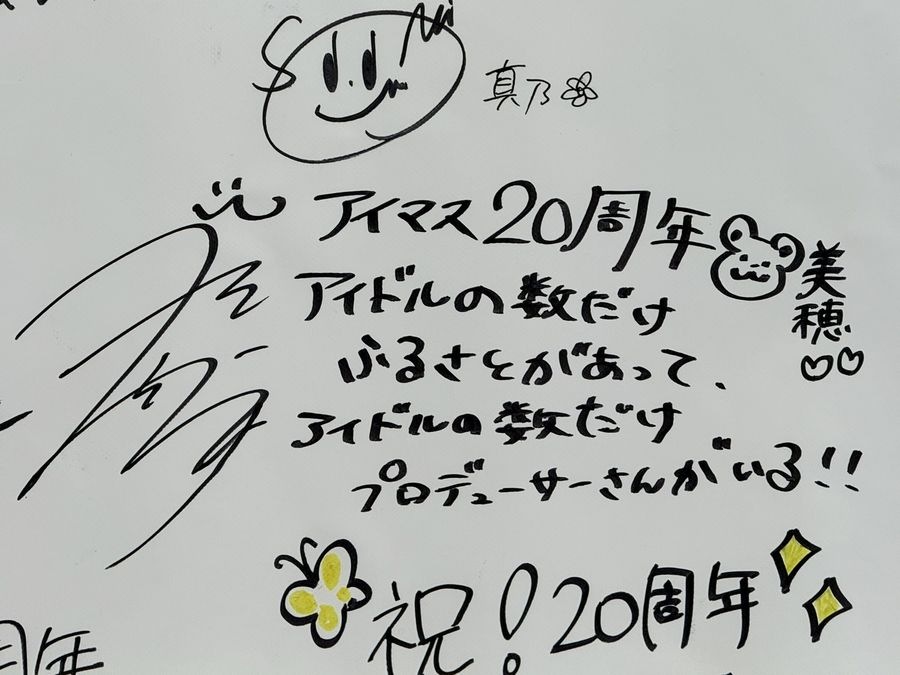 真乃
アイマス20周年
美穂
アイドルの数だけ
ふるさとがあって、
アイドルの数だけ
プロデューサーさんがいる!!
祝!20周年
周年